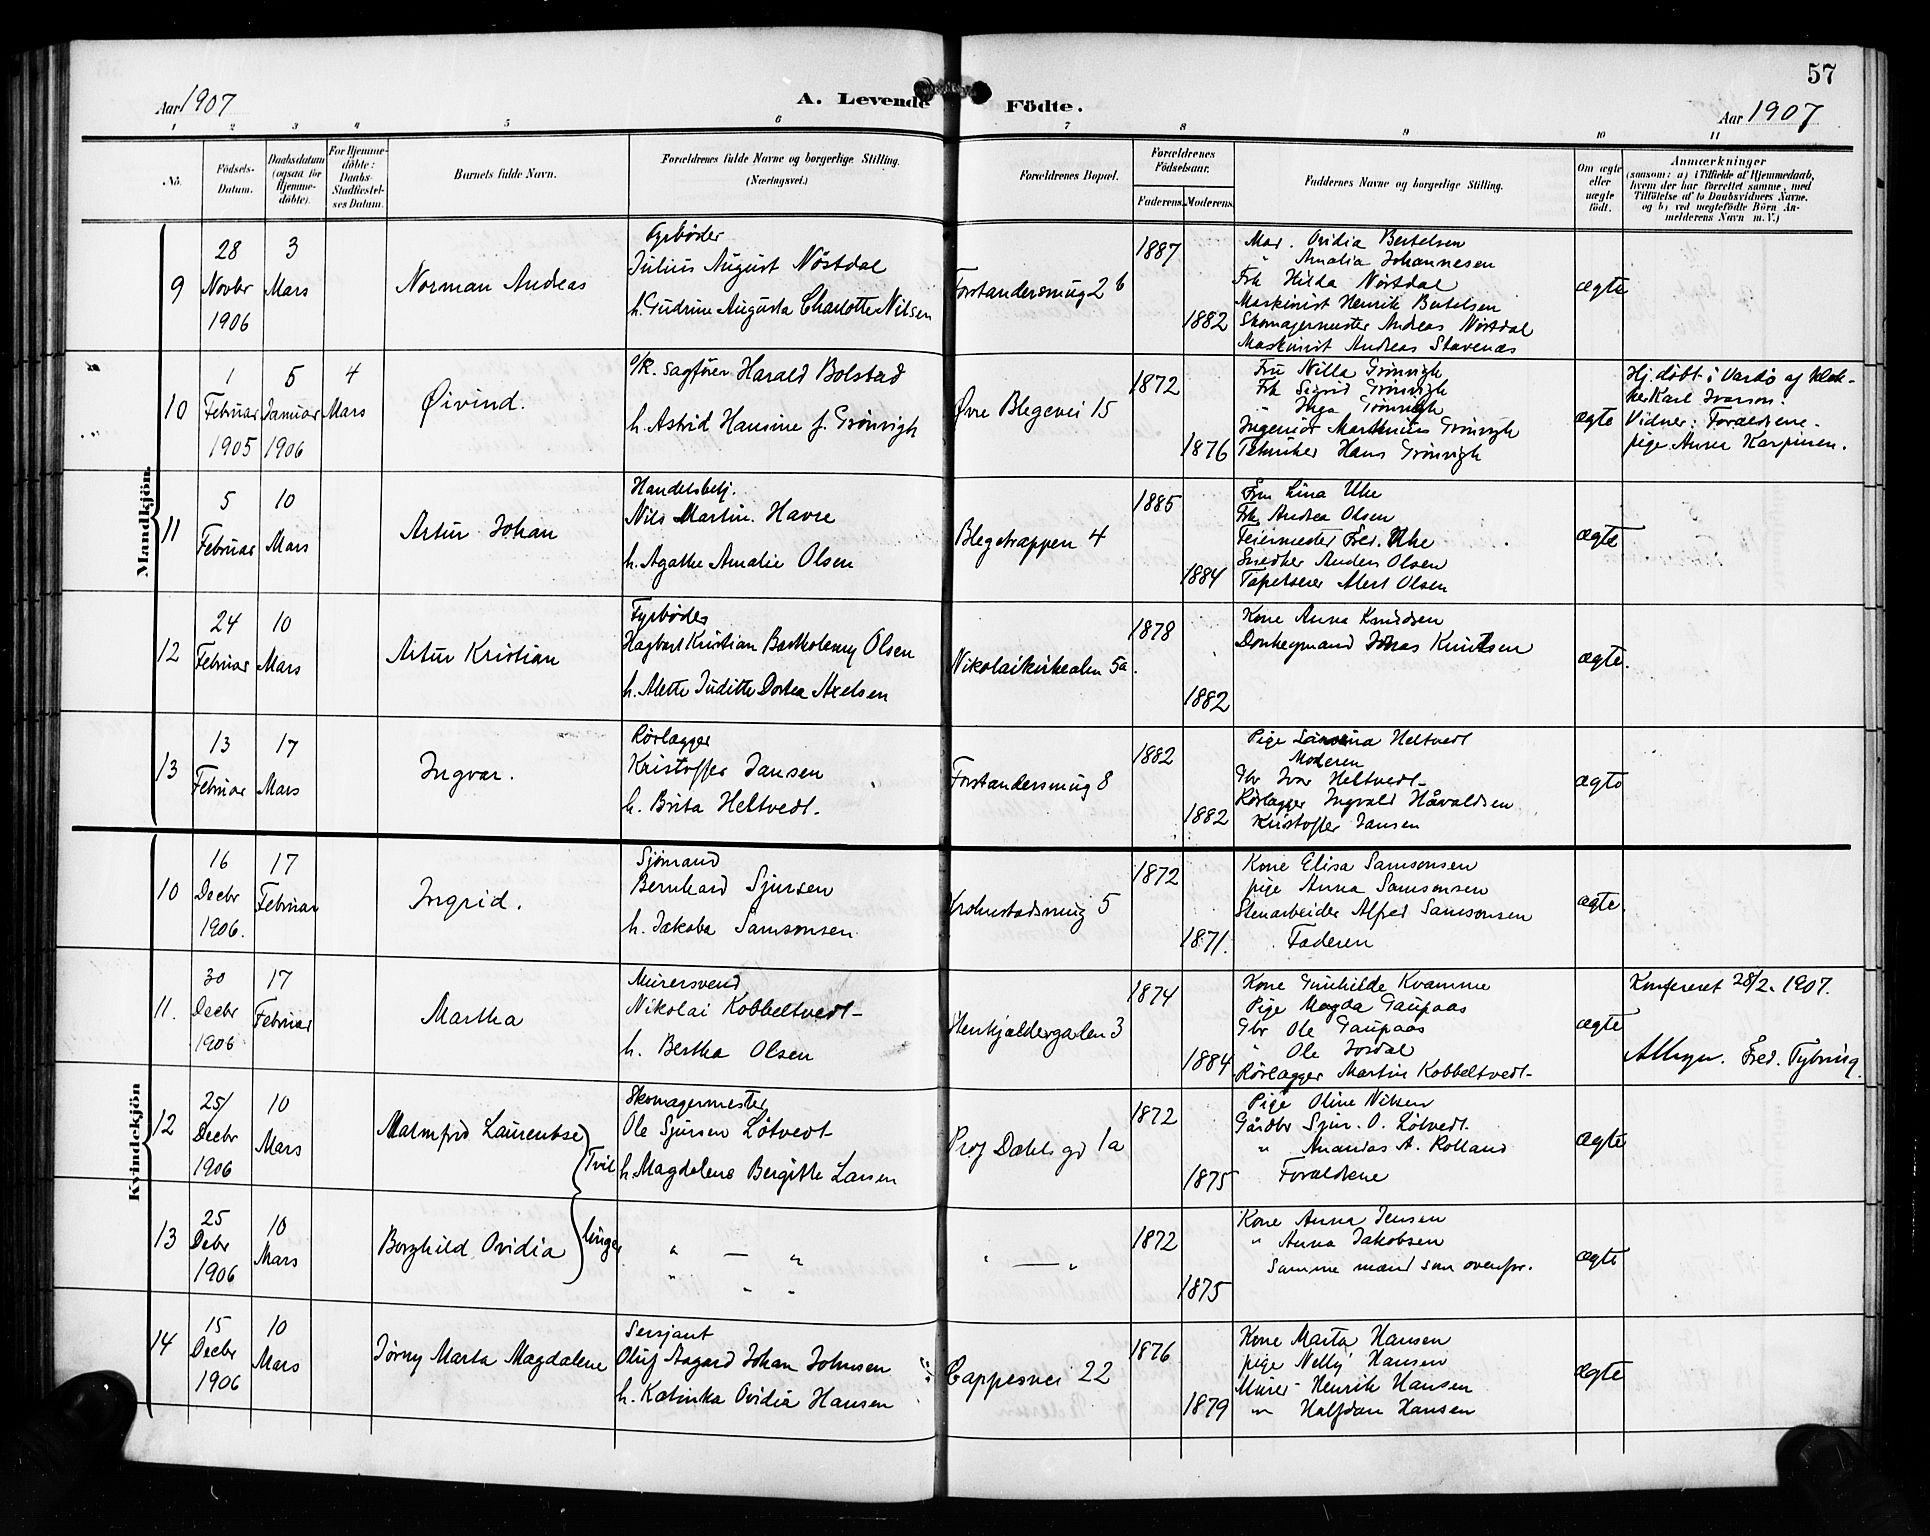 57
Aar 1907
A. Levende Födte.
Aar 1907
1 2 3 4 5 6 7 8 9 10 11
No.
Födsels-Datum.
Daabsdatum (ogsaa for Hjemme-döbte).
For Hjemme-döbte: Daabs-Stadfæstel-ses Datum.
Barnets fulde Navn.
Forældrenes fulde Navne og borgerlige Stilling.
(Næringsvei.)
Forældrenes Bopæl.
Forældrenes Födselsaar.
Faderens. Moderens.
Faddernes Navne og borgerlige Stilling.
Om ægte eller uægte födt.
Anmærkninger
(saasom: a) i Tilfælde af Hjemmedaab,
hvem der har forrettet samme, med
Tilföielse af to Daabsvidners Navne.
og b) ved uægtefödte Börn An-
melderens Navn m. V.)
Mandkjön.
9
28 Novbr 1906
3 Mars
Norman Andreas
Fyrbøder
Julius August Nöstdal
h. Gudrun Augusta Charlotte Nilsen
Forstandersmug 2 b
1887
1882
Mad. Ovidia Bertelsen
" Amalia Johannesen
Frk Hilda Nøstdal
Maskinist Henrik Bertelsen
Skomagermester Andreas Nøstdal
Maskinist Andreas Stavenæs
ægte
10
1 Februar 1905
5 Januar 1906
4 Mars
Øivind.
o/r. sagfører Harald Bolstad
h. Astrid Hansine f. Grönvigh
Øvre Blegevei 15
1872
1876
Fru Nilla Grönvigh
Frk Sigrid Grönvigh
Inga Grönvigh
Ingeniör Martinius Grönvigh
Tekniker Hans Grönvigh
ægte
Hj. döbt i Vardö af klok-
ker Karl Ivarson.
Vidner: Forældrene.
pige Anna Karpinen.
11
5 Februar
10 Mars
Artur Johan
Handelsbetj.
Nils Martin Havre
h. Agathe Amalie Olsen
Blegetrappen 4
1885
1884
Fru Lina Uhe
Frk. Andrea Olsen
Feiermester Fred. Uhe
Snedker Anders Olsen
Tapetserer Alert Olsen
ægte
12
24 Februar
10 Mars
Artur Kristian
Fyrbøder
Hagbart Kristian Bartholemy Olsen
h. Alette Juditte Dortea Axelsen
Nikolaikirkealm 5a.
1878
1882
Kone Anna Knudsen
Donkeymand Jonas Knudsen
ægte.
13
13 Februar
17 Mars
Ingvar.
Rørlægger
Kristoffer Jansen
h. Brita Heltvedt.
Forstandersmug 8
1882
1882
Pige Heltvedt
Moderen
Gbr Ivar Heltvedt
Rørlægger Ingvald Håvaldsen
Kristoffer Jansen
ægte
Kvindekjön
10
16 Decbr 1906.
17 Februar
Ingrid.
Sjømand
Bernhard Sjursen
h. Jakoba Samsonsen
Krohnstadsmug 5
1872
1871.
Kone Elisa Samsonsen
pige Anna Samsonsen
Stenarbeider Alfred Samsonsen
Faderen
ægte.
11.
30 Decbr 1906
17 Februar
Martha
Murersvend
Nikolai Kobbeltvedt
h. Bertha Olsen
Stenkjeldergaten 3
1874
1884
Kone Gunhilde Kvamme
Pige Magda Gaupaas
Gbr Ole Gaupaas
" Ole Jordal
Rørlægger Martin Kobbeltvedt
ægte
Konfereret 28/2. 1907.
Fred. Tybring
12
25/ Decbr 1906
10 Mars
Malmfrid Laurentse
Tvil
Skomagermester
Ole Sjursen Løtvedt
h. Magdelene Bergitte Larsen
Prof Dahls gd 1a
1872
1875
Pige Oline Nilsen
Gårdbr Sjur. O. Løtvedt.
" Ananias A. Rolland
Forældrene
ægte
13
25 Debr 1906
10 Mars
Borghild Ovidia
linger
" — "
" " "
" — "
1872
1875
Kone Anna Jensen
" Anna Jakobsen
Samme mænd som ovenfor.
ægte
14
15 Decbr 1906
10 Mars
Jørny Marta Magdalene
Sersjant
Oluf Aagard Johan Johnsen
h. Katinka Ovidia Hansen
Cappesvei 22
1876
1879
Kone Marta Hansen
pige Nelly Hansen
Murer Henrik Hansen
" Halfdan Hansen
ægte